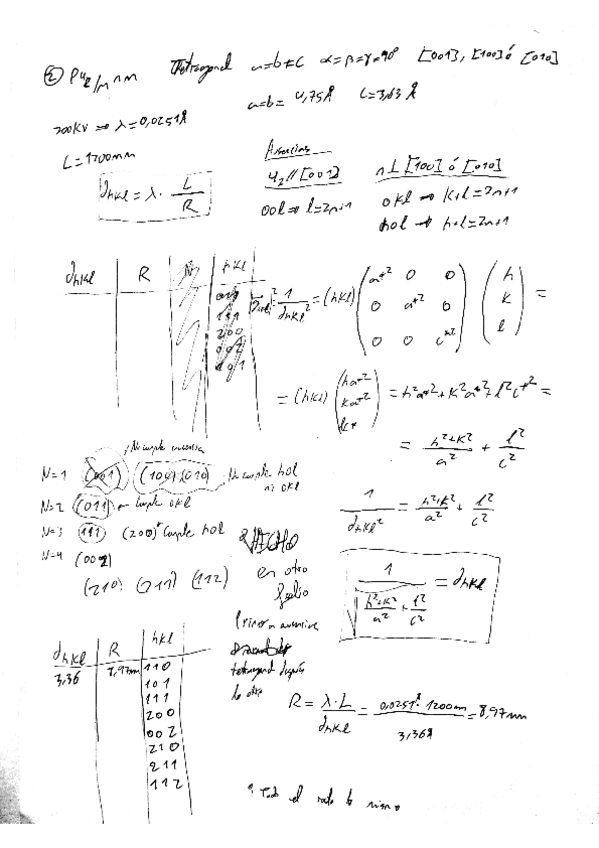 ② P4₂/mnm Tetragonal a=b≠c α=β=γ=90° [001], [100] ó [010]
a=b= 4,75Å c=3,63 Å
200KV ⇒ λ=0,0251Å
L=1200mm
d_hkl = λ · L/R
Ausencias
4₂ // [001]
00l ⇒ l=2n+1
n⊥ [100] ó [010]
0kl → k+l=2n+1
h0l → h+l=2n+1
d_hkl R N hkl
111
200
002
101
1/d_hkl² = (hkl) (a*² 0 0 / 0 a*² 0 / 0 0 c*²) (h / k / l) =
= (hkl) (ha*² / ka*² / lc*) = h²a*²+k²a*²+l²c*² =
= (h²+k²)/a² + l²/c²
No cumple ausencia
N=1 (001) (100) (010) No cumple h0l
ni 0kl
N=2 (011) → cumple 0kl
N=3 (111) (200) cumple h0l
N=4 (002)
(210) (211) (112)
1/d_hkl² = (h²+k²)/a² + l²/c²
1/√((h²+k²)/a² + l²/c²) = d_hkl
en otro
folio
Primero ausencias
tetragonal después
lo otro
d_hkl R hkl
3,36 8,97mm 110
101
111
200
002
210
211
112
R = λ·L/d_hkl = 0,0251Å · 1200mm/3,36Å = 8,97mm
Todo el rato lo mismo